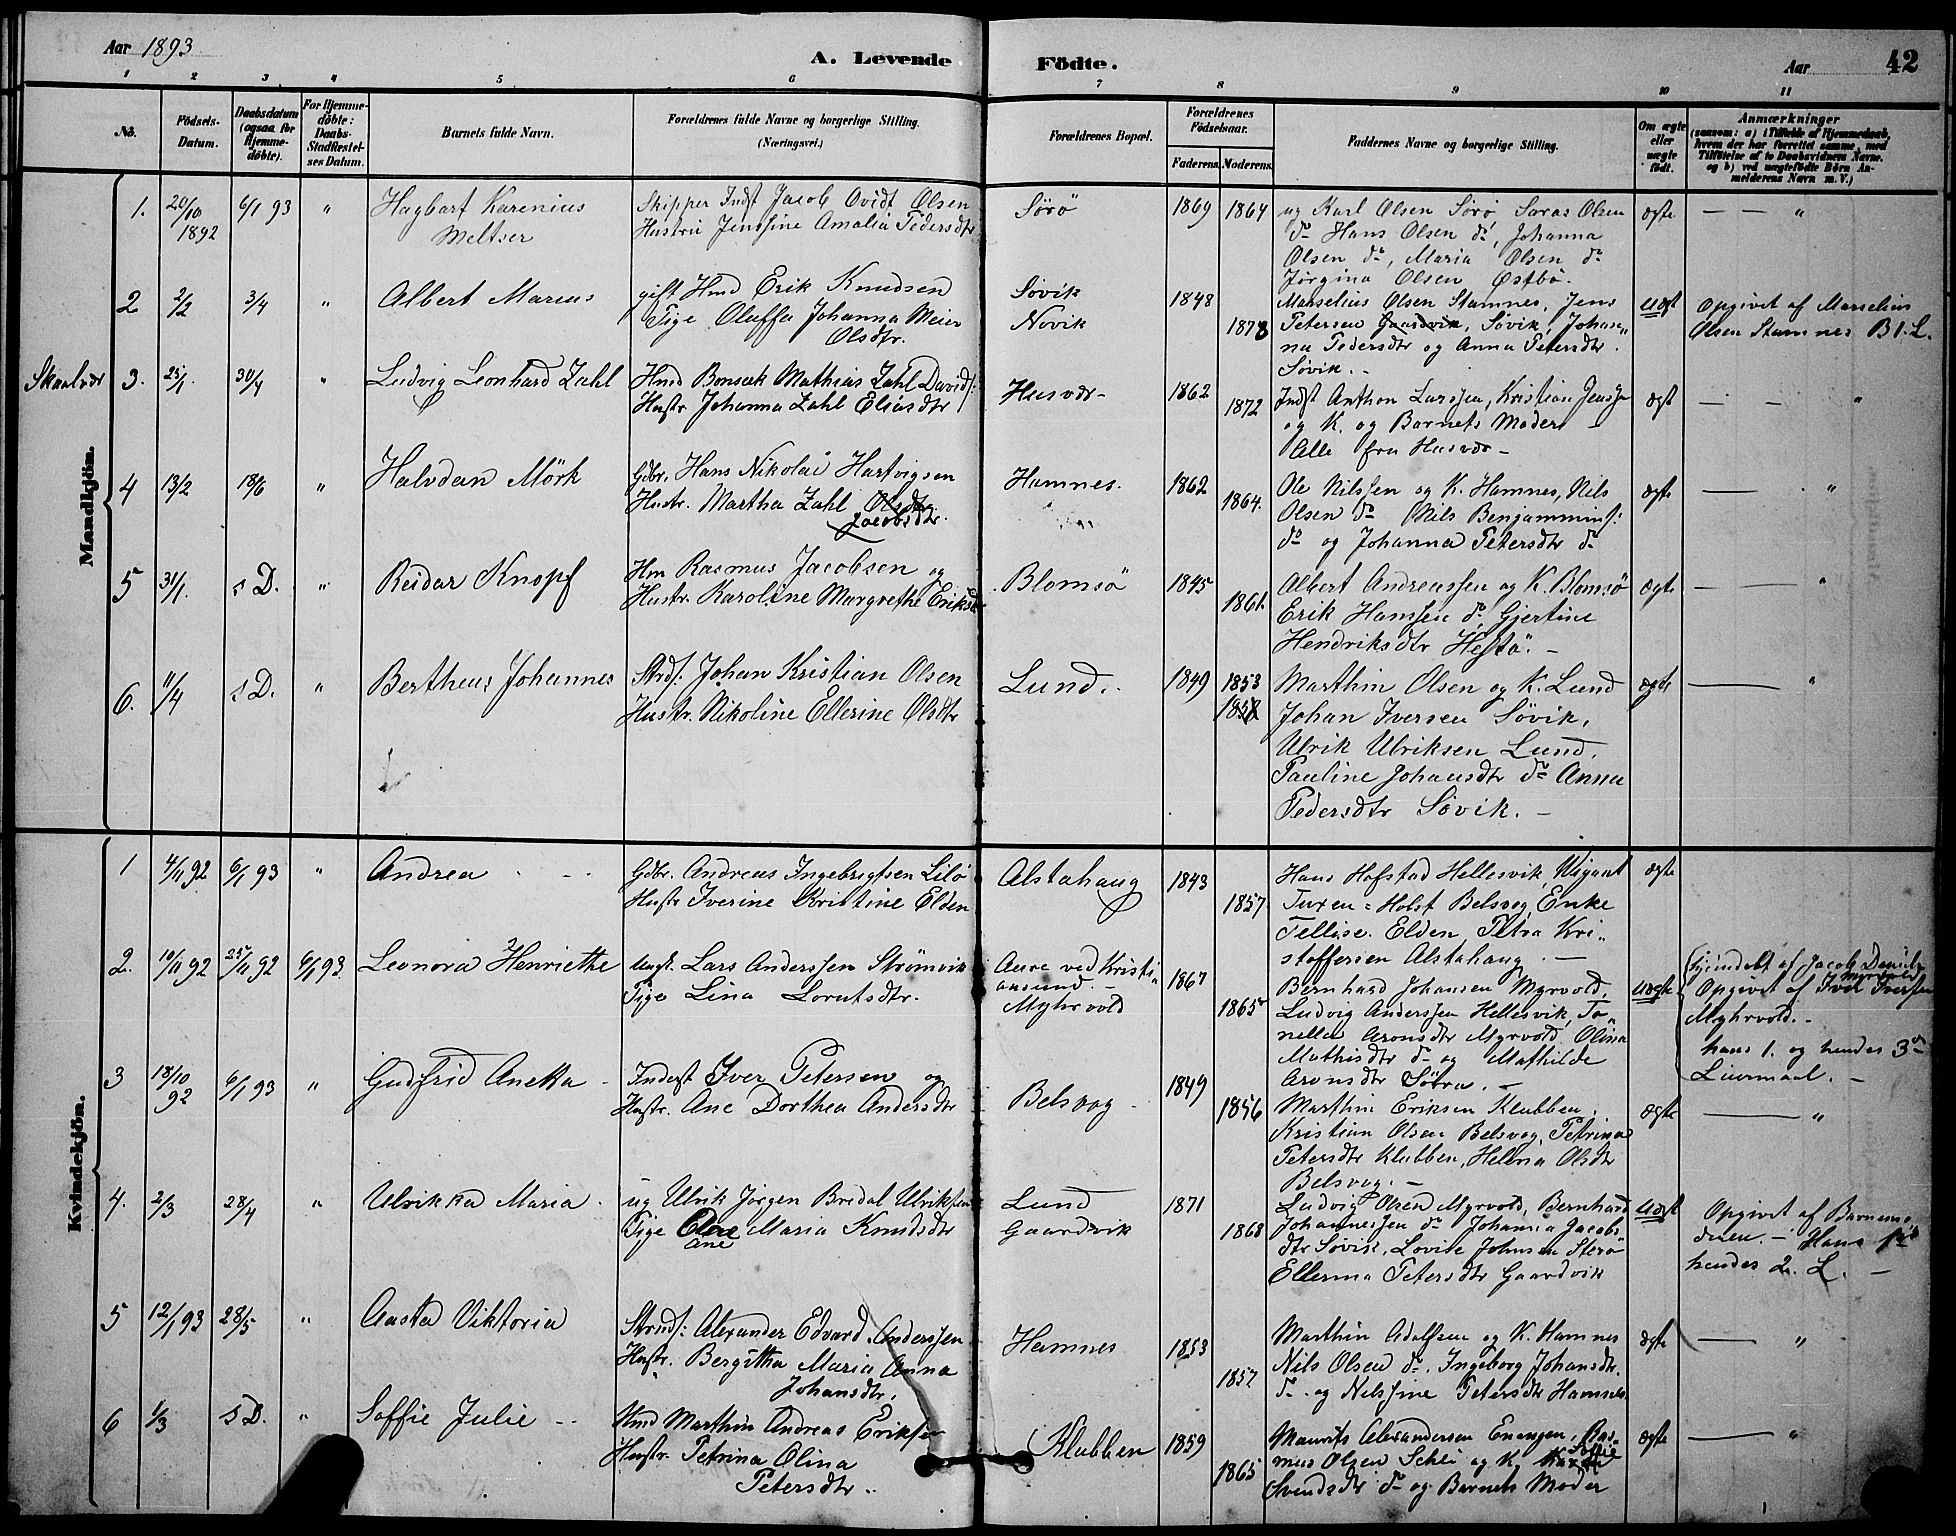 Aar 1893
A. Levende Födte.
Aar
42
1 2 3 4 5 6 7 8 9 10 11
No.
Födsels-Datum.
Daabsdatum (ogsaa for Hjemme-döbte).
For Hjemme-döbte: Daabs-Stadfæstel-ses Datum.
Barnets fulde Navn.
Forældrenes fulde Navne og borgerlige Stilling. (Næringsvei.)
Forældrenes Bopæl.
Forældrenes Födselsaar.
Faderens. Moderens.
Faddernes Navne og borgerlige Stilling.
Om ægte eller uægte födt.
Anmærkninger
(saasom: a) i Tilfælde af Hjemmedaab, hvem der har forrettet samme, med Tilföielse af to Daabsvidners Navne. og b) ved uægtefödte Börn An-melderens Navn m. V.)
Mandkjön.
1. 20/10 1892 6/1 93 "
Hagbart Karenius
Meltser
Skipper Indst Jacob Ovidt Olsen
Hustru Jensine Amalia Pedersdtr
Sörö
1869 1864
ug Karl Olsen Sörö, Saras Olsen
do Hans Olsen do, Johanna
Olsen do, Maria Olsen do
Jörgina Olsen Östbö.
ægte
— — "
2 2/2 3/4 "
Albert Marius
gift Hmd Erik Knudsen
Pige Oluffa Johanna Meier
Olsdtr.
Sövik
Novik
1848
1878
Marselius Olsen Stamnes, Jens
Petersen Gaardvik, Sövik, Johan"
na Pedersdtr og Anna Petersdtr.
Sövik.
Uægt
Opgivet af Marselius
Olsen Stamnes B 1. L.
Skaalvær 3. 25/1. 30/4 "
Ludvig Leonhard Zahl
Hmd Bonsak Mathias Zahl Davids:
Hustr. Johanna Zahl Eliasdtr
Husvær
1862
1872
Indst Anthon Larssen, Kristian Jenssen
og K. og Barnets Moder
Alle fra Husvær
ægt
— — "
4 13/2 18/6 "
Halvdan Mörk
Gdbr. Hans Nikolai Hartvigsen
Hustr. Martha Zahl Olsdtr
Jacobsdtr.
Hamnes.
1862
1864.
Ole Nilssen og K. Hamnes, Nils
Olsen do Nils Benjamins:
do og Johanna Petersdtr do
ægte
— "
5 31/1. s D. "
Reidar Knopf
Hm Rasmus Jacobsen og
Hustr. Karoline Margrethe Eriksd
Blomsö
1845
1861.
Albert Andreassen og K. Blomsö
Erik Hanssen do Gjertine
Hendriksdtr Hestö.
ægte
— "
6. 11/4 s D. "
Bertheus Johannes
Strds: Johan Kristian Olsen
Hustr. Nikoline Ellerine Olsdtr
Lund.
1849 1853
1858
Marthin Olsen og K. Lund
Johan Iversen Sövik,
Ulrik Ulriksen Lund,
Pauline Johansdtr do Anna
Pedersdtr Sövik.
ægte
— "
Kvindekjön.
1 4/11 92 6/1 93 "
Andrea
Gdbr. Andreas Ingebrigtsen Lilö
Hustr Iverine Kristine Elden
Alstahaug
1843
1857.
Hans Hofstad Hellesvik, Wigant
Tuxen = Holst Belsvog, Enke
Tellise. Elden Petra Kri"
stoffersen Alstahaug.
ægte
2. 10/11 92 25/11 92 6/1 93
Leonora Henriette
Ungk. Lars Anderssen Strömvik
Pige Lina Lorntsdtr.
Aure ved Kristi"
ansund.
Myhrvold
1867
1865
Bernhard Johansen Myrvold,
Ludvig Anderssen Hellesvik, To"
nella Aronsdtr Myrvold. Olina
Mathisdtr do og Mathilde
Aronsdtr Sötra.
Uægte
Hjemdöbt af Jacob Daniels
Myrvold
Opgivet af Iver Iversen
Myhrvold.
hans 1. og hendes 3de
Leiermaal.
3 18/10 92 6/1 93 "
Gudfrid Anetta
Inderst Iver Petersen og
Hustr. Ane Dorthea Andersdtr
Belsvog
1849
1856
Marthin Eriksen Klubben.
Kristian Olsen Belsvog, Petrina
Petersdtr Klubben, Helena Olsdtr
Belsvog.
ægte
— "
4. 2/3 28/4 "
Ulrikka Maria
ug Ulrik Jörgen Bredal Ulriksen
Pige Ane Maria Knudsdtr
Ane
Lund
Gaardvik
1871
1868
Ludvig Olsen Myrvold, Bernhard
Johannessen do Johanna Jacobs
dtr Sövik, Lovise Johnsen Sterö
Ellerina Petersdtr Gaardvik
Uægt
Opgivet af Barnemo
deren. — Hans 1ste
hendes 2. L.
5 12/1 93 28/5 "
Aasta Viktoria
Strnds: Alexander Edvard Anderssen
Hustr. Bergitha Maria Anna
Johansdtr.
Hamnes
1853
1857
Marthin Adolfsen og K. Hamnes
Nils Olsen do. Ingeborg Johansdtr.
do. og Nilssine Petersdtr Hamnes
ægte
— "
6 1/3 s D. "
Soffie Julie
Hmd Marthin Andreas Eriksen
Hustr. Petrina Olina
Petersdtr.
Klubben
1859
1865
Maurits Alexandersen Enangen, Ras-
mus Olsen Schei og K. Soffie
Svendsdtr do og Barnets Moder
ægte
— "